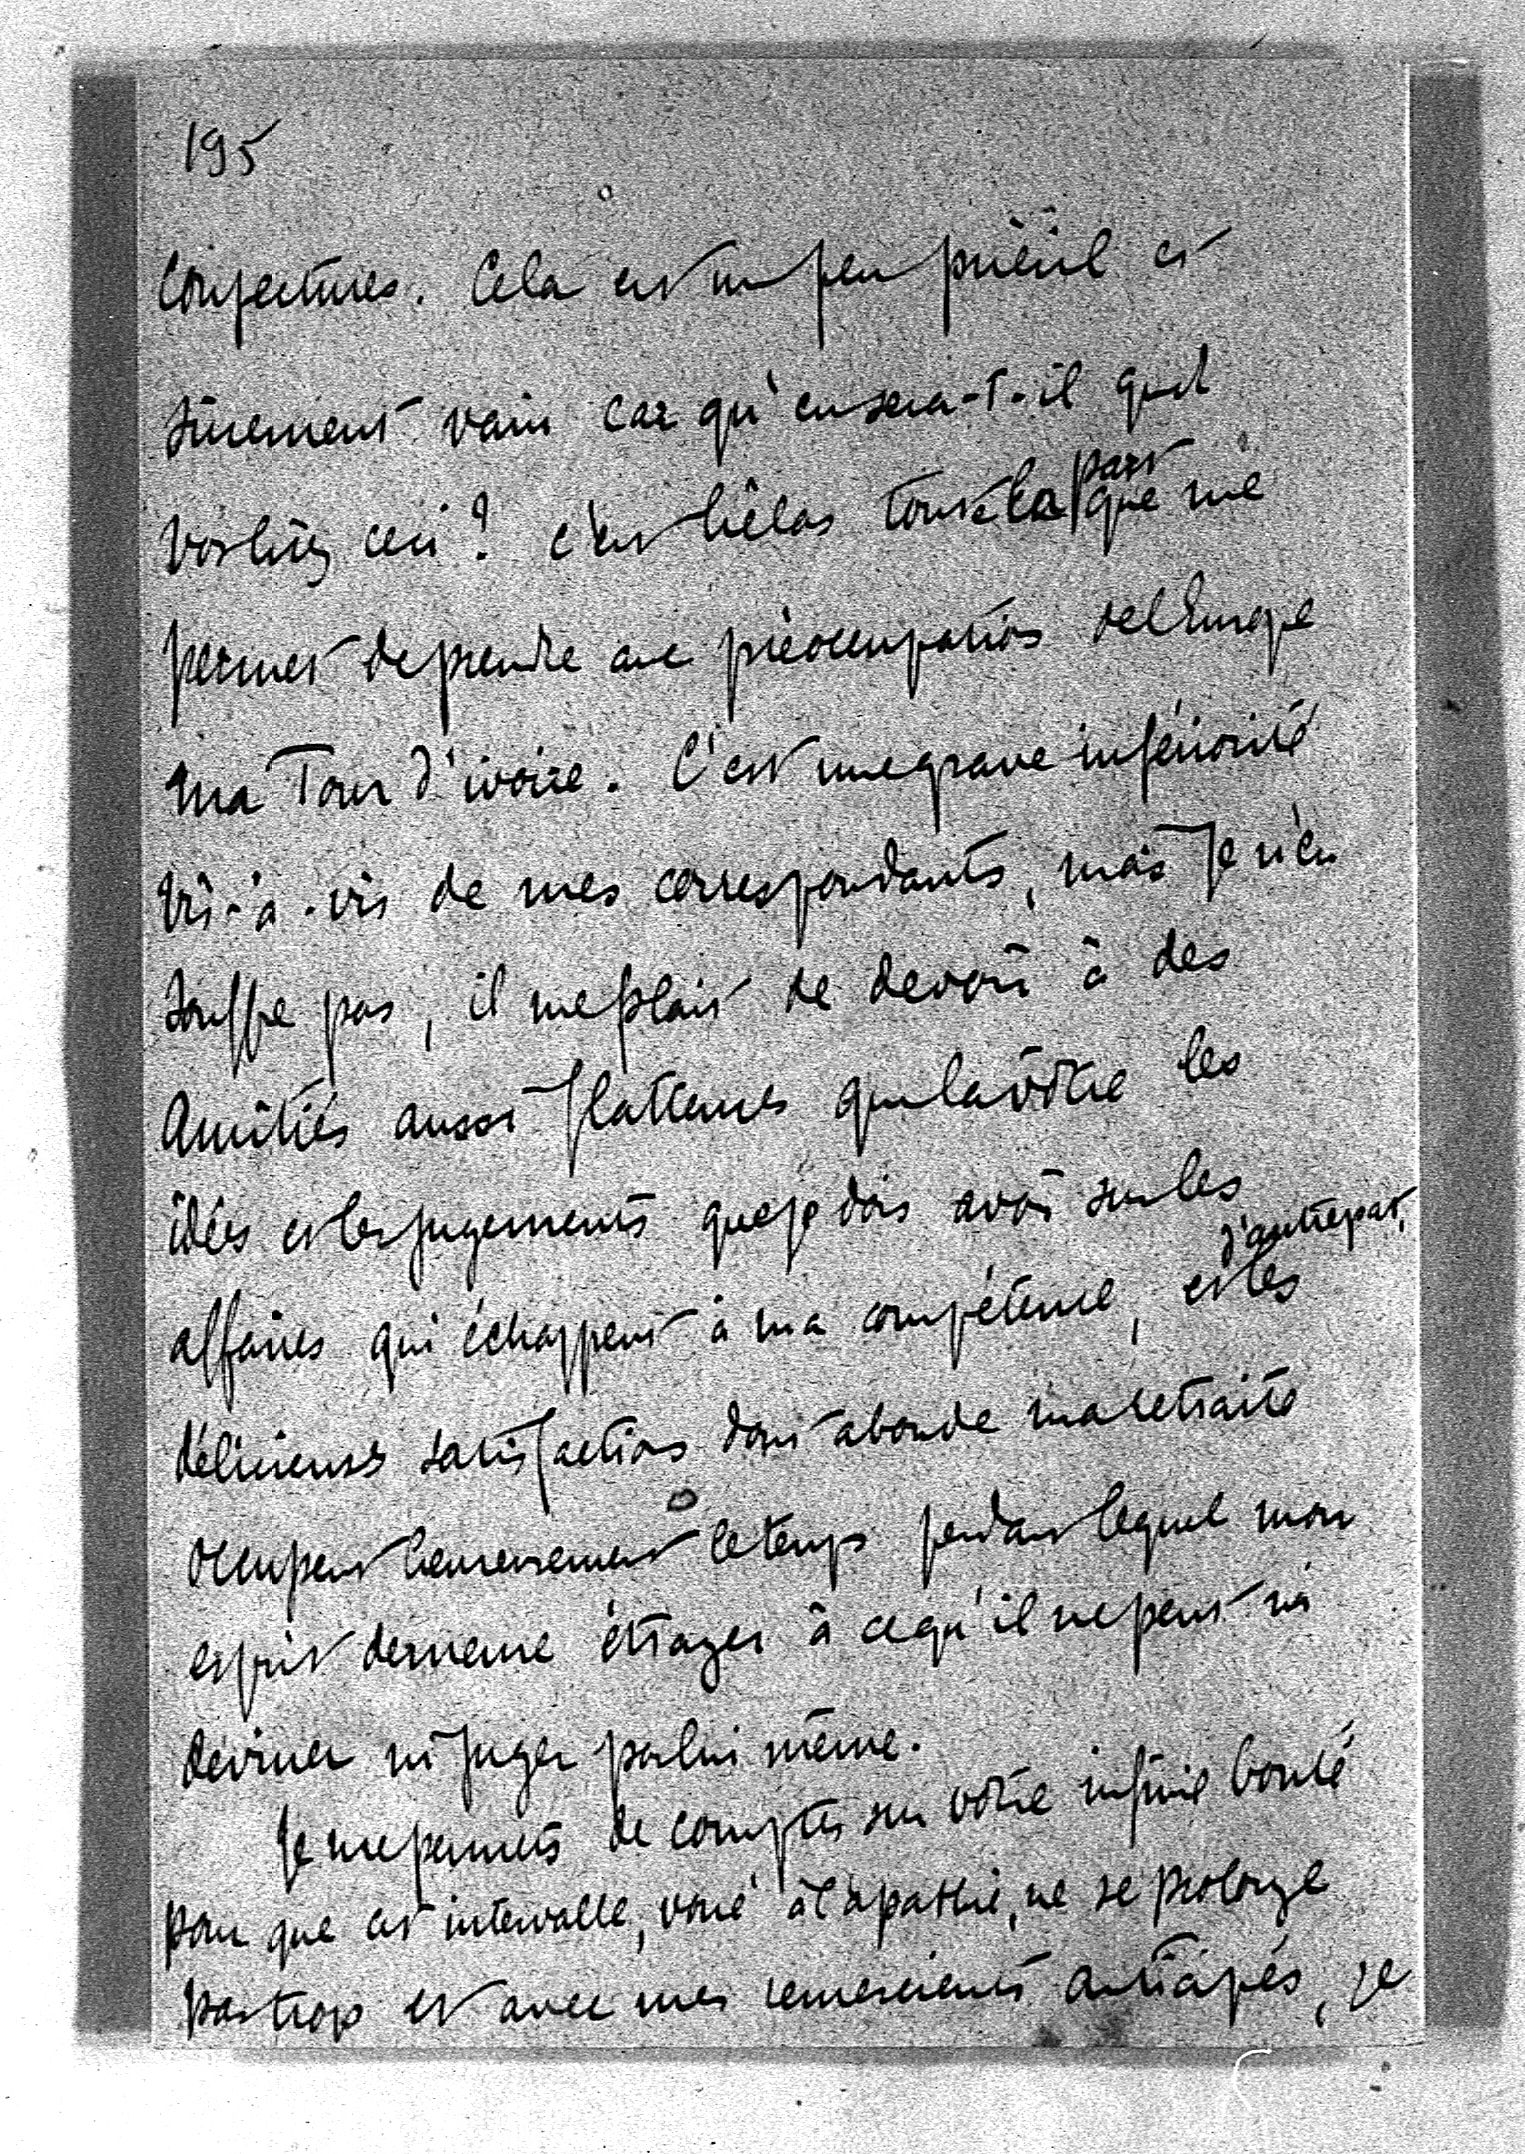 195
conjectures. Cela est un peu puéril et
sûrement vain car qu'en sera-t-il quand
vous lirez ceci ? c'est hélas toute la part que me
permet de prendre aux préoccupations de l'Europe
ma Tour d'ivoire. C'est une grave infériorité
vis-à-vis de mes correspondants, mais je n'en
souffre pas, il me plait de devoir à des
amitiés aussi flatteuses que la vôtre les
idées et les jugements que je dois avoir sur les
affaires qui échappent à ma compétence, et les d'autre part,
délicieuses satisfactions dont abonde ma retraite
occupent heureusement le temps pendant lequel mon
esprit demeure étranger à ce qu'il ne peut ni
deviner ni juger par lui même.
Je me permets de compter sur votre infinie bonté
pour que cet intervalle, voué à l'apathie, ne se prolonge
pas trop et avec mes remerciements anticipés, je